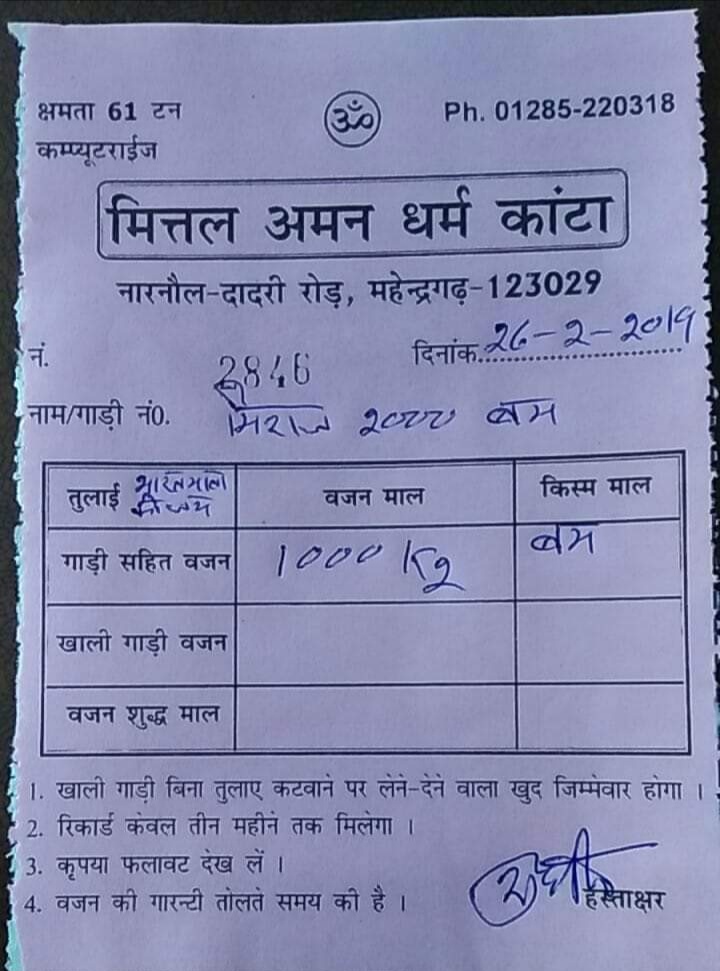 क्षमता 61 टन
ॐ
Ph. 01285-220318
कम्प्यूटराईज
मित्तल अमन धर्म कांटा
नारनौल-दादरी रोड़, महेन्द्रगढ़-123029
नं. 2846 दिनांक. 26-2-2019
नाम/गाड़ी नं0. मिराज 2000 बम
तुलाई वजन माल किस्म माल
गाड़ी सहित वजन 1000 Kg बम
खाली गाड़ी वजन
वजन शुद्ध माल
1. खाली गाड़ी बिना तुलाए कटवाने पर लेने-देने वाला खुद जिम्मेवार होगा ।
2. रिकार्ड केवल तीन महीने तक मिलेगा ।
3. कृपया फलावट देख लें ।
4. वजन की गारन्टी तोलते समय की है ।
हस्ताक्षर